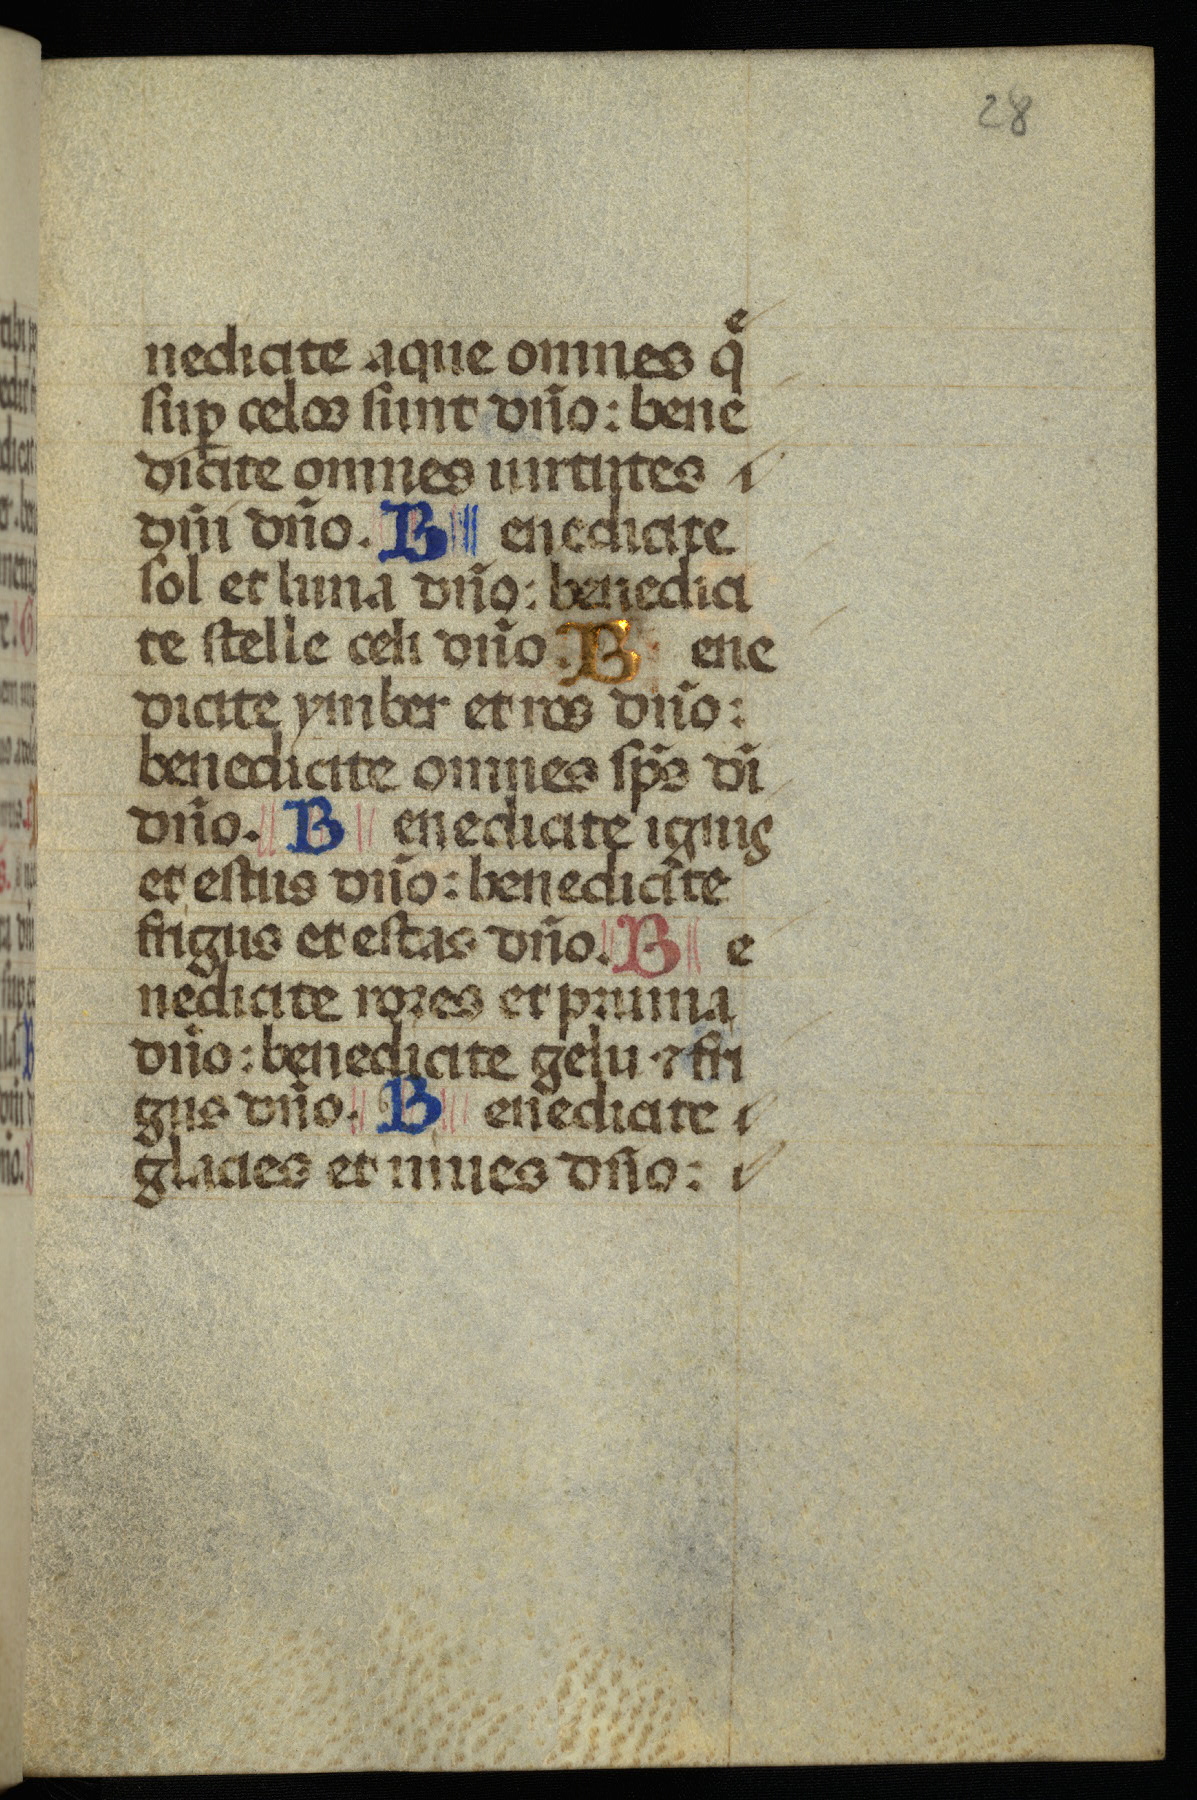 28
nedicite aque omnes q̄e
sup̱ celos sunt dn̄o: bene
dicite omnes uirtutes
dn̄i dn̄o. B enedicite
sol et luna dn̄o: benedici
te stelle celi dn̄o. B ene
dicite ymber et ros dn̄o:
benedicite omnes sp̄s dī
dn̄o. B enedicite ignis
et estus dn̄o: benedicite
frigus et estas dn̄o. B e
nedicite rores et pruina
dn̄o: benedicite gelu ⁊ fri
gus dn̄o. B enedicite
glacies et niues dn̄o: